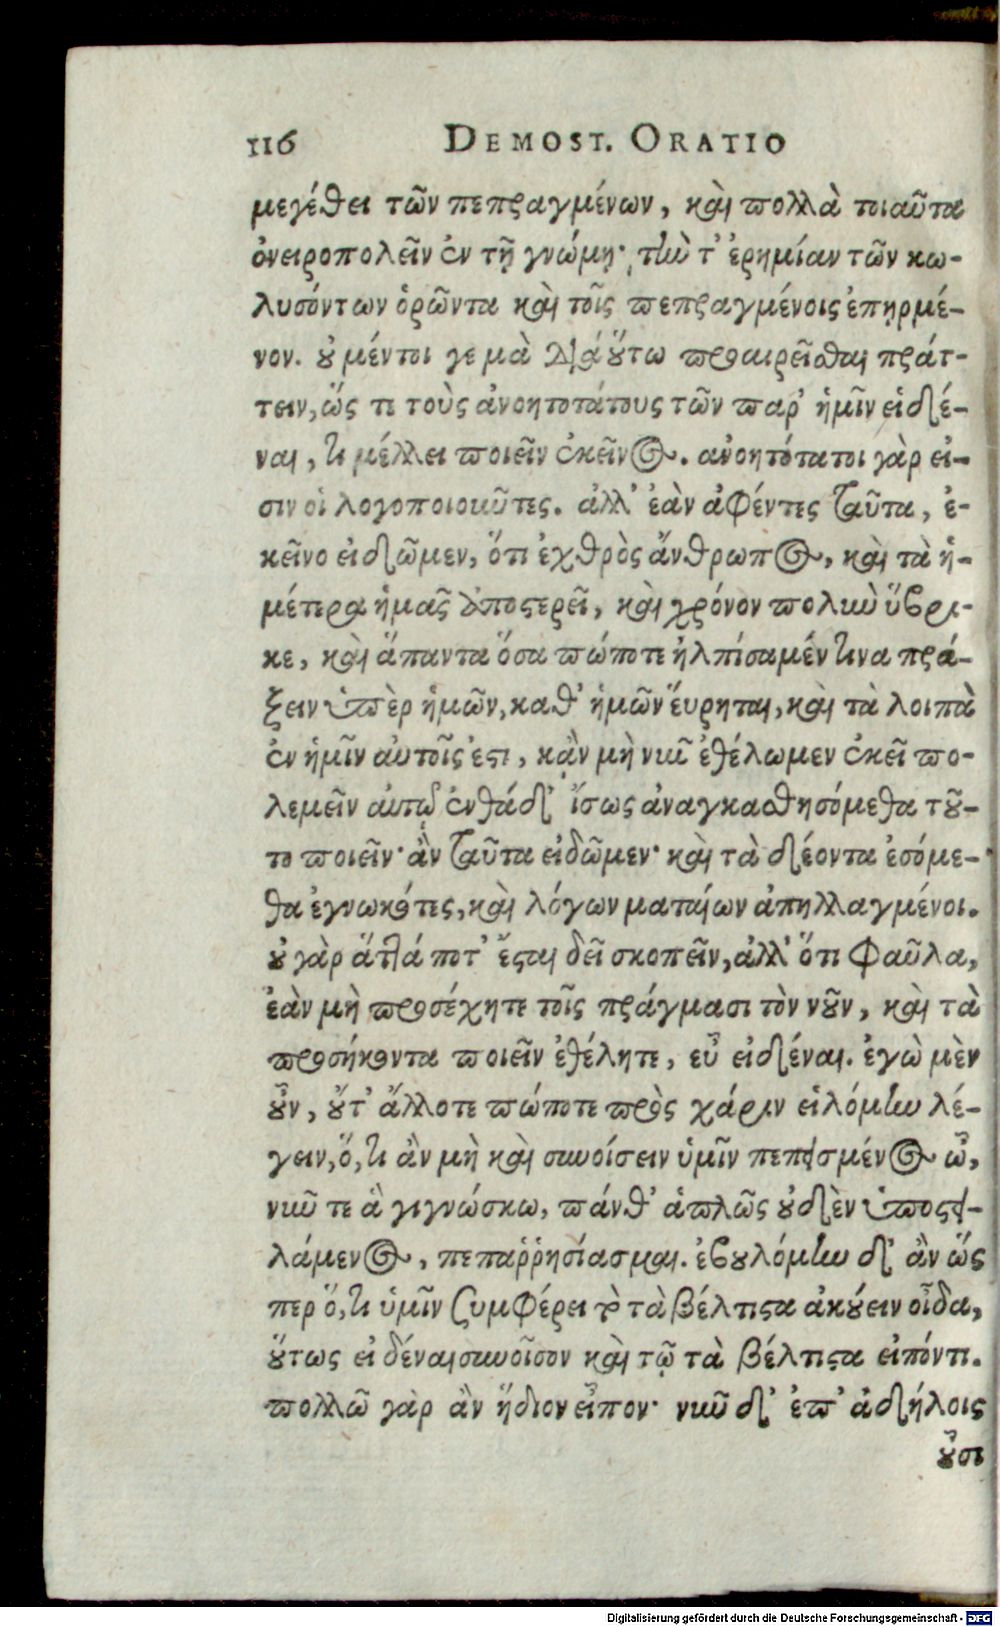 116 DEMOST. ORATIO
μεγέθει τῶν πεπραγμένων, καὶ πολλὰ τοιαῦτα
ὀνειροπολεῖν ἐν τῇ γνώμῃ· τὴν τ' ἐρημίαν τῶν κω-
λυσόντων ὁρῶντα καὶ τοῖς πεπραγμένοις ἐπηρμέ-
νον. οὐ μέντοι γε μὰ Δί' οὕτω προαιρεῖσθαι πράτ-
τειν, ὥς τι τοὺς ἀνοητοτάτους τῶν παρ' ἡμῖν εἰδέ-
ναι, τί μέλλει ποιεῖν ἐκεῖνος. ἀνοητότατοι γὰρ εἰ-
σιν οἱ λογοποιοῦντες. ἀλλ' ἐὰν ἀφέντες ταῦτα, ἐ-
κεῖνο εἰδῶμεν, ὅτι ἐχθρὸς ἄνθρωπος, καὶ τὰ ἡ-
μέτερα ἡμᾶς ἀποστερεῖ, καὶ χρόνον πολὺν ὕβρι-
κε, καὶ ἅπαντα ὅσα πώποτε ἠλπίσαμέν τινα πρά-
ξειν ὑπὲρ ἡμῶν, καθ' ἡμῶν εὕρηται, καὶ τὰ λοιπὰ
ἐν ἡμῖν αὐτοῖς ἐστι, κἂν μὴ νῦν ἐθέλωμεν ἐκεῖ πο-
λεμεῖν αὐτῷ ἐνθάδ' ἴσως ἀναγκασθησόμεθα τοῦ-
το ποιεῖν· ἂν ταῦτα εἰδῶμεν· καὶ τὰ δέοντα ἐσόμε-
θα ἐγνωκότες, καὶ λόγων ματαίων ἀπηλλαγμένοι.
οὐ γὰρ ἅττά ποτ' ἔσται δεῖ σκοπεῖν, ἀλλ' ὅτι φαῦλα,
ἐὰν μὴ προσέχητε τοῖς πράγμασι τὸν νοῦν, καὶ τὰ
προσήκοντα ποιεῖν ἐθέλητε, εὖ εἰδέναι. ἐγὼ μὲν
οὖν, οὔτ' ἄλλοτε πώποτε πρὸς χάριν εἱλόμην λέ-
γειν, ὅ, τι ἂν μὴ καὶ συνοίσειν ὑμῖν πεπεισμένος ὦ,
νῦν τε ἃ γιγνώσκω, πάνθ' ἁπλῶς οὐδὲν ὑποστει-
λάμενος, πεπαῤῥησίασμαι. ἐβουλόμην δ' ἂν ὥς
περ ὅ, τι ὑμῖν συμφέρει τὸ τὰ βέλτιστα ἀκούειν οἶδα,
οὕτως εἰδέναι συνοῖσον καὶ τῷ τὰ βέλτιστα εἰπόντι.
πολλῷ γὰρ ἂν ἥδιον εἶπον· νῦν δ' ἐπ' ἀδήλοις
οὖσι
Digitalisierung gefördert durch die Deutsche Forschungsgemeinschaft - DFG